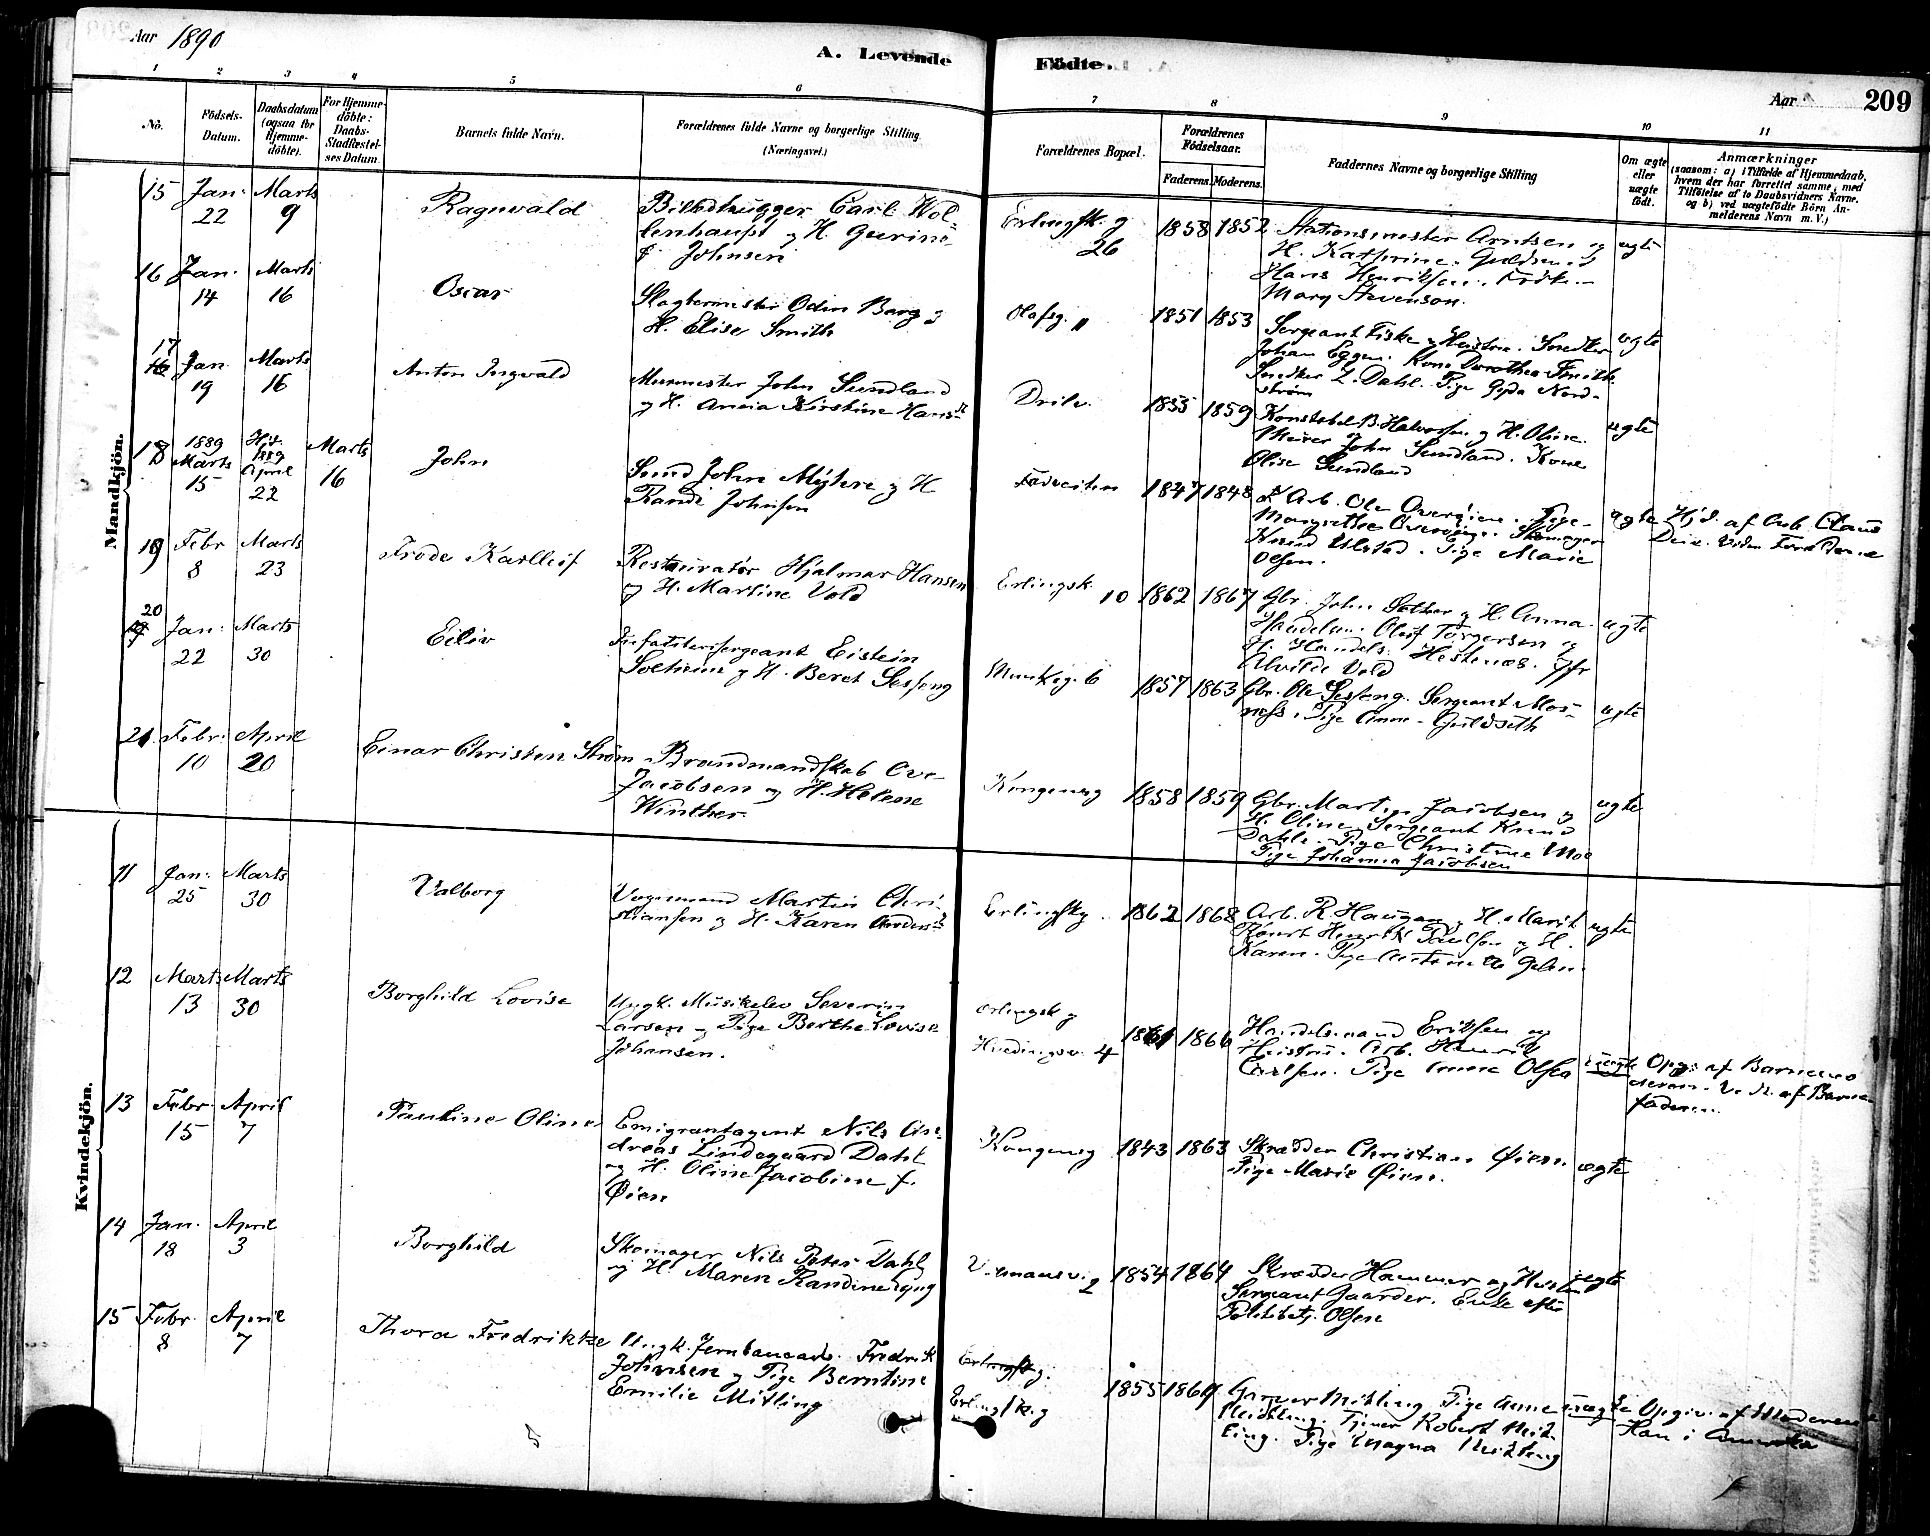 Aar 1890
A. Levende Födte.
Aar
209
1 2 3 4 5 6 7 8 9 10 11
No.
Födsels-Datum.
Daabsdatum (ogsaa for Hjemme-döbte).
For Hjemme-döbte: Daabs-Stadfæstel-ses Datum.
Barnets fulde Navn.
Forældrenes fulde Navne og borgerlige Stilling (Næringsvei.)
Forældrenes Bopæl.
Forældrenes Födselsaar.
Faderens. Moderens.
Faddernes Navne og borgerlige Stilling
Om ægte eller uægte födt.
Anmærkninger
(saasom: a) i Tilfælde af Hjemmedaab,
hvem der har forrettet samme, med
Tilföielse af to Daabsvidners Navne.
og b) ved uægtefödte Börn An-
melderens Navn m. V.)
Mandkjön.
15 Jan. 22 Marts 9 Ragnvald
Billedhugger Carl Wol-
lenhaupt og H. Gurine
Johnsen
Erlingsk. g 26 1858 1852
Stationsmester Arntsen og
H. Kathrine.
Hans Henriksen. Frøk.
Mary Stevenson.
ægte
16 Jan. 14 Marts 16 Oscar
Slagtermester Odin Berg og
H. Elise Smith
Olafsg. 11 1851 1853
Sergeant Fiske og Hustru. Snedker
Johan Eggen. Kone Dorothea Smith
Snedker L. Dahl. Pige Gyda Nord-
strøm
ægte
17 Jan. 19 Marts 16 Anton Ingvald
Murmester John Sundland
og H. Kirstine Hans
1855 1859
Konstabel B. Halvorsen og H. Oline.
Murer John Sundland. Kone
Olise Sundland
ægte
18 1889 Marts 15 Hjd. 1889 April 22 Marts 16 John
Smed John Myhre og H
Randi Johnsen
1847 1848
Arb. Ole Overøien. Pige
Margrethe Overøien. Skomager
Ulstad. Pige Marie
Olsen.
ægte
Hjd. af Arb. Claus
Forældrene
19 Febr 8 Marts 23 Frode Karlleif
Restauratør Hjalmar Hansen
og H. Martine Vold
Erlingsk. 10 1862 1867
Gbr. John Sæther og H. Anna.
Oluf Torgersen og
H. Handels. Hestenæs. Jfr
Alvilde Vold
ægte
20 Jan. 22 Marts 30 Eiliv
Infanterisergeant Eistein
Solheim og H. Beret Sesseng
Munkeg. 6 1857 1863
Gbr. Ole Sesseng. Sergeant Mos-
næss. Pige Anne Guldseth
ægte
21. Febr. 10 April 20 Einar Christen Strøm
Brandmandskab Ove
Jacobsen og H. Helene
Winther
Kongensg 1858 1859
Gbr. Martin Jacobsen og
H. Oline. Sergeant Knud
Dahle. Pige Christine Moe
Pige Johanna Jacobsen
ægte
Kvindekjön.
11 Jan. 25 Marts 30 Valborg
Vognmand Martin Chri-
stiansen og H. Karen Anders
Erlingskg. 1862 1868
Arb. R. Haugan og H. Marit
Henrik Paulsen og H.
Karen. Pige
ægte
12 Marts 13 Marts 30 Borghild Lovise
Ungk. Musikelev Severin
Larsen og Pige Berthe Lovise
Johansen.
Erlingsk g
4 1861 1866
Handelsmand Eriksen og
Hustru. Arb. Henrik
Carlsen. Pige Anne Olsen
uægte
Opg. af Barnemo
deren. V. K. af Barne
faderen.
13 Febr. 15 April 7 Pauline Oline
Emigrantagent Nils An-
dreas Lindegaard Dahl
og H. Oline Jacobine f.
Øien
Kongensg 1843 1863
Skrædder Christian Øien.
Pige Marie Øien.
ægte
14 Jan. 18 April 3 Borghild
Skomager Nils Peter Dahl
og H. Maren Randine Lyng
2 1854 1864
Skrædder Hammer og Hustru
Sergeant Gaarder. Enke efter
Politibetj. Olsen
ægte
15 Febr. 8 April 7 Thora Fredrikke
Ungk. Jernbanearb. Fredrik
Johnsen og Pige Berntine
Emilie Mitling
Erlingskg.
Erlingsk. g
1855 1869
Mitling Pige Anne
Mitling. Tjener Robert Mit-
ling. Pige Magna Mitling
uægte
Opgiv. af Moderen
Han i Amerika